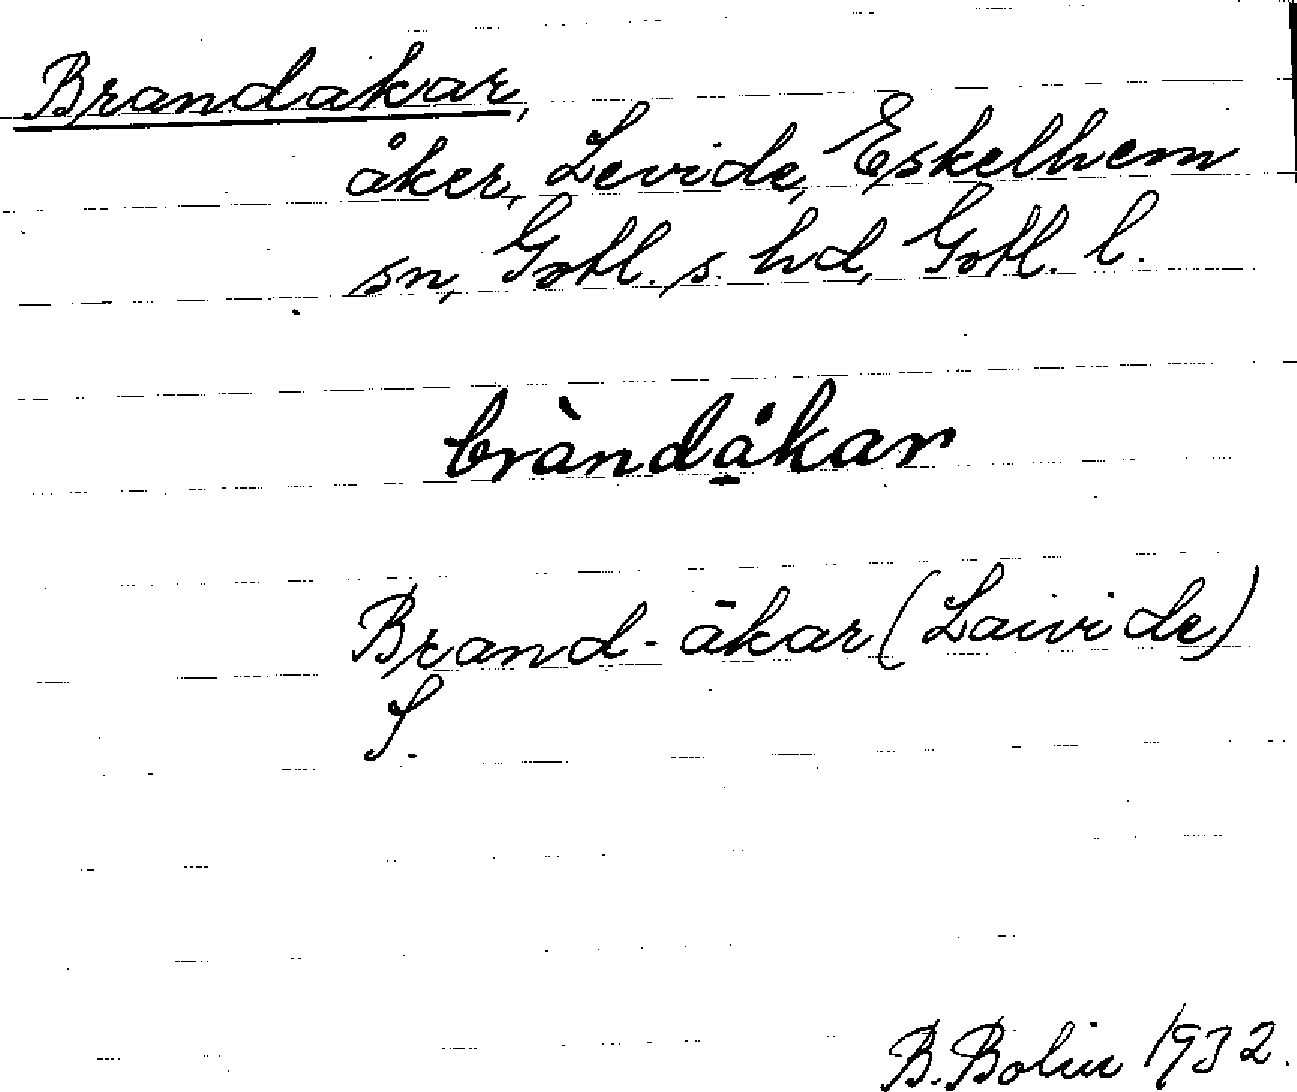 Brandakar,
åker, Levide, Eskelhem
sn, Gotl. s. hd, Gotl. l.
bràndåkar
Brand-ākar (Laivide)
S.
B. Bolin 1932.